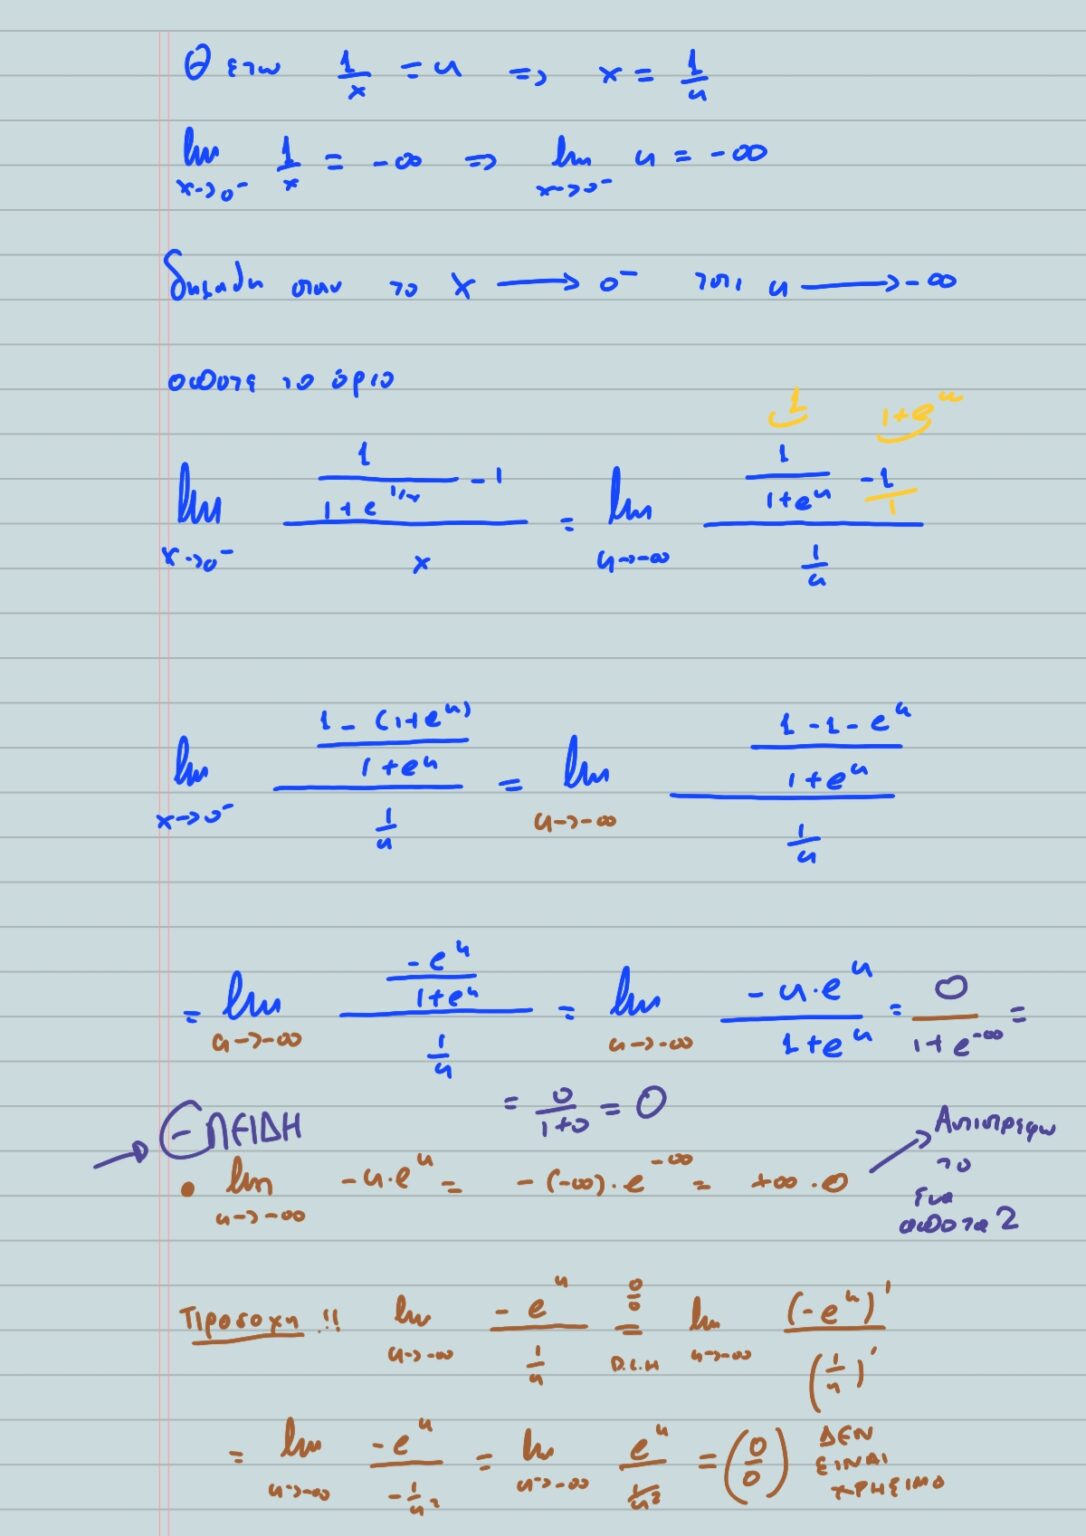 Θετω 1/x = u => x = 1/u
lim x->0⁻ 1/x = -∞ => lim x->0⁻ u = -∞
δηλαδη οταν το x ⟶ 0⁻ τοτε u ⟶ -∞
οποτε το όριο
1 1+e^u
lim x->0⁻ (1/(1+e^(1/x)) - 1)/x = lim u->-∞ (1/(1+e^u) - 1/1)/(1/u)
lim x->0⁻ ((1-(1+e^u))/(1+e^u))/(1/u) = lim u->-∞ ((1-1-e^u)/(1+e^u))/(1/u)
= lim u->-∞ (-e^u/(1+e^u))/(1/u) = lim u->-∞ (-u·e^u)/(1+e^u) = 0/(1+e^-∞) =
= 0/(1+0) = 0
→ ΕΠΕΙΔΗ
• lim u->-∞ -u·e^u = -(-∞)·e^-∞ = +∞·0 ↗ Αντιστρεφω
το
ενα
απο τα 2
Προσοχη!! lim u->-∞ -e^u/(1/u) 0/0 = D.L.H lim u->-∞ (-e^u)'/(1/u)'
= lim u->-∞ -e^u/(-1/u²) = lim u->-∞ e^u/(1/u²) = (0/0) ΔΕΝ
ΕΙΝΑΙ
ΧΡΗΣΙΜΟ